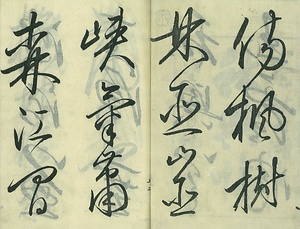 傷楓樹
林巫山巫
峽氣蕭
森江間